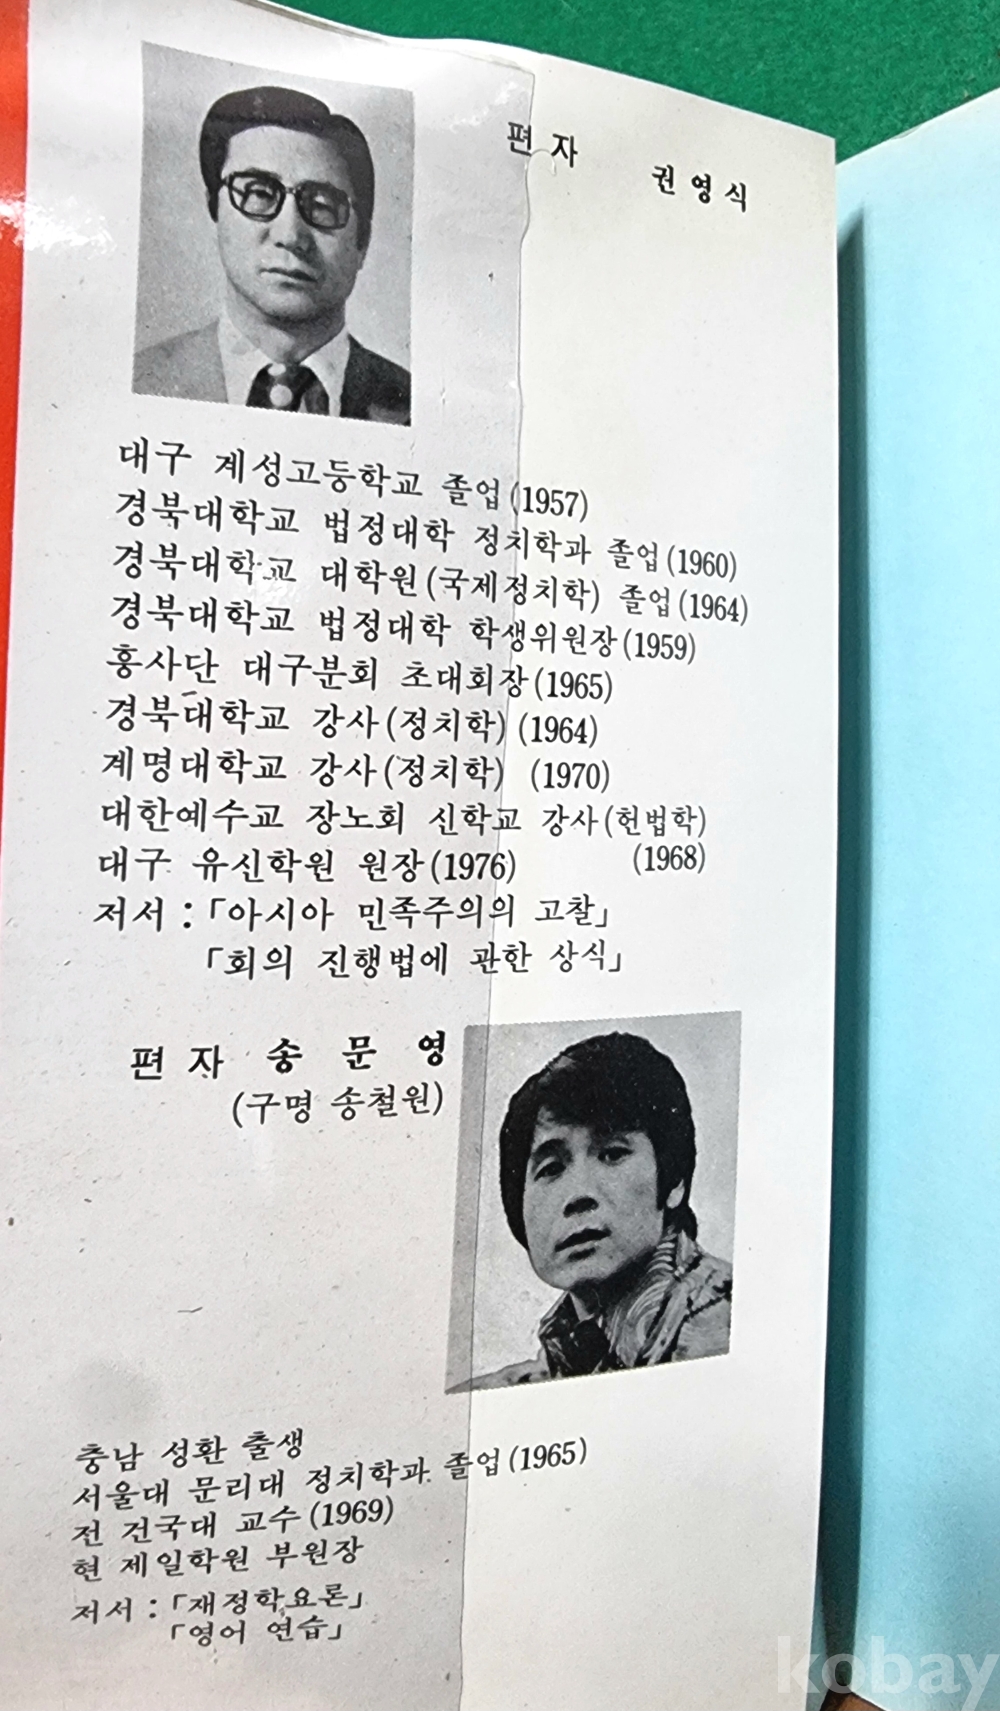 편 자
권 영 식
대구 계성고등학교 졸업(1957)
경북대학교 법정대학 정치학과 졸업(1960)
경북대학교 대학원(국제정치학) 졸업(1964)
경북대학교 법정대학 학생위원장(1959)
흥사단 대구분회 초대회장(1965)
경북대학교 강사(정치학)(1964)
계명대학교 강사(정치학) (1970)
대한예수교 장노회 신학교 강사(헌법학)
(1968)
대구 유신학원 원장(1976)
저서 : 「아시아 민족주의의 고찰」
「회의 진행법에 관한 상식」
편 자 송 문 영
(구명 송철원)
충남 성환 출생
서울대 문리대 정치학과 졸업(1965)
전 건국대 교수(1969)
현 제일학원 부원장
저서 : 「재정학요론」
「영어 연습」
kobay